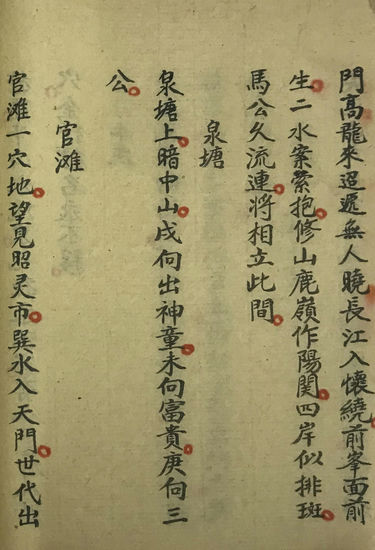 門高龍來迢遞無人曉長江入懷繞前峯面前
生二水案縈抱修山鹿嶺作陽関四岸似排班
馬公久流連將相立此間
泉塘
泉塘上暗中山戌向出神童未向富貴庚向三
公
官滩
官滩一穴地望見昭灵市巽水入天門世代出